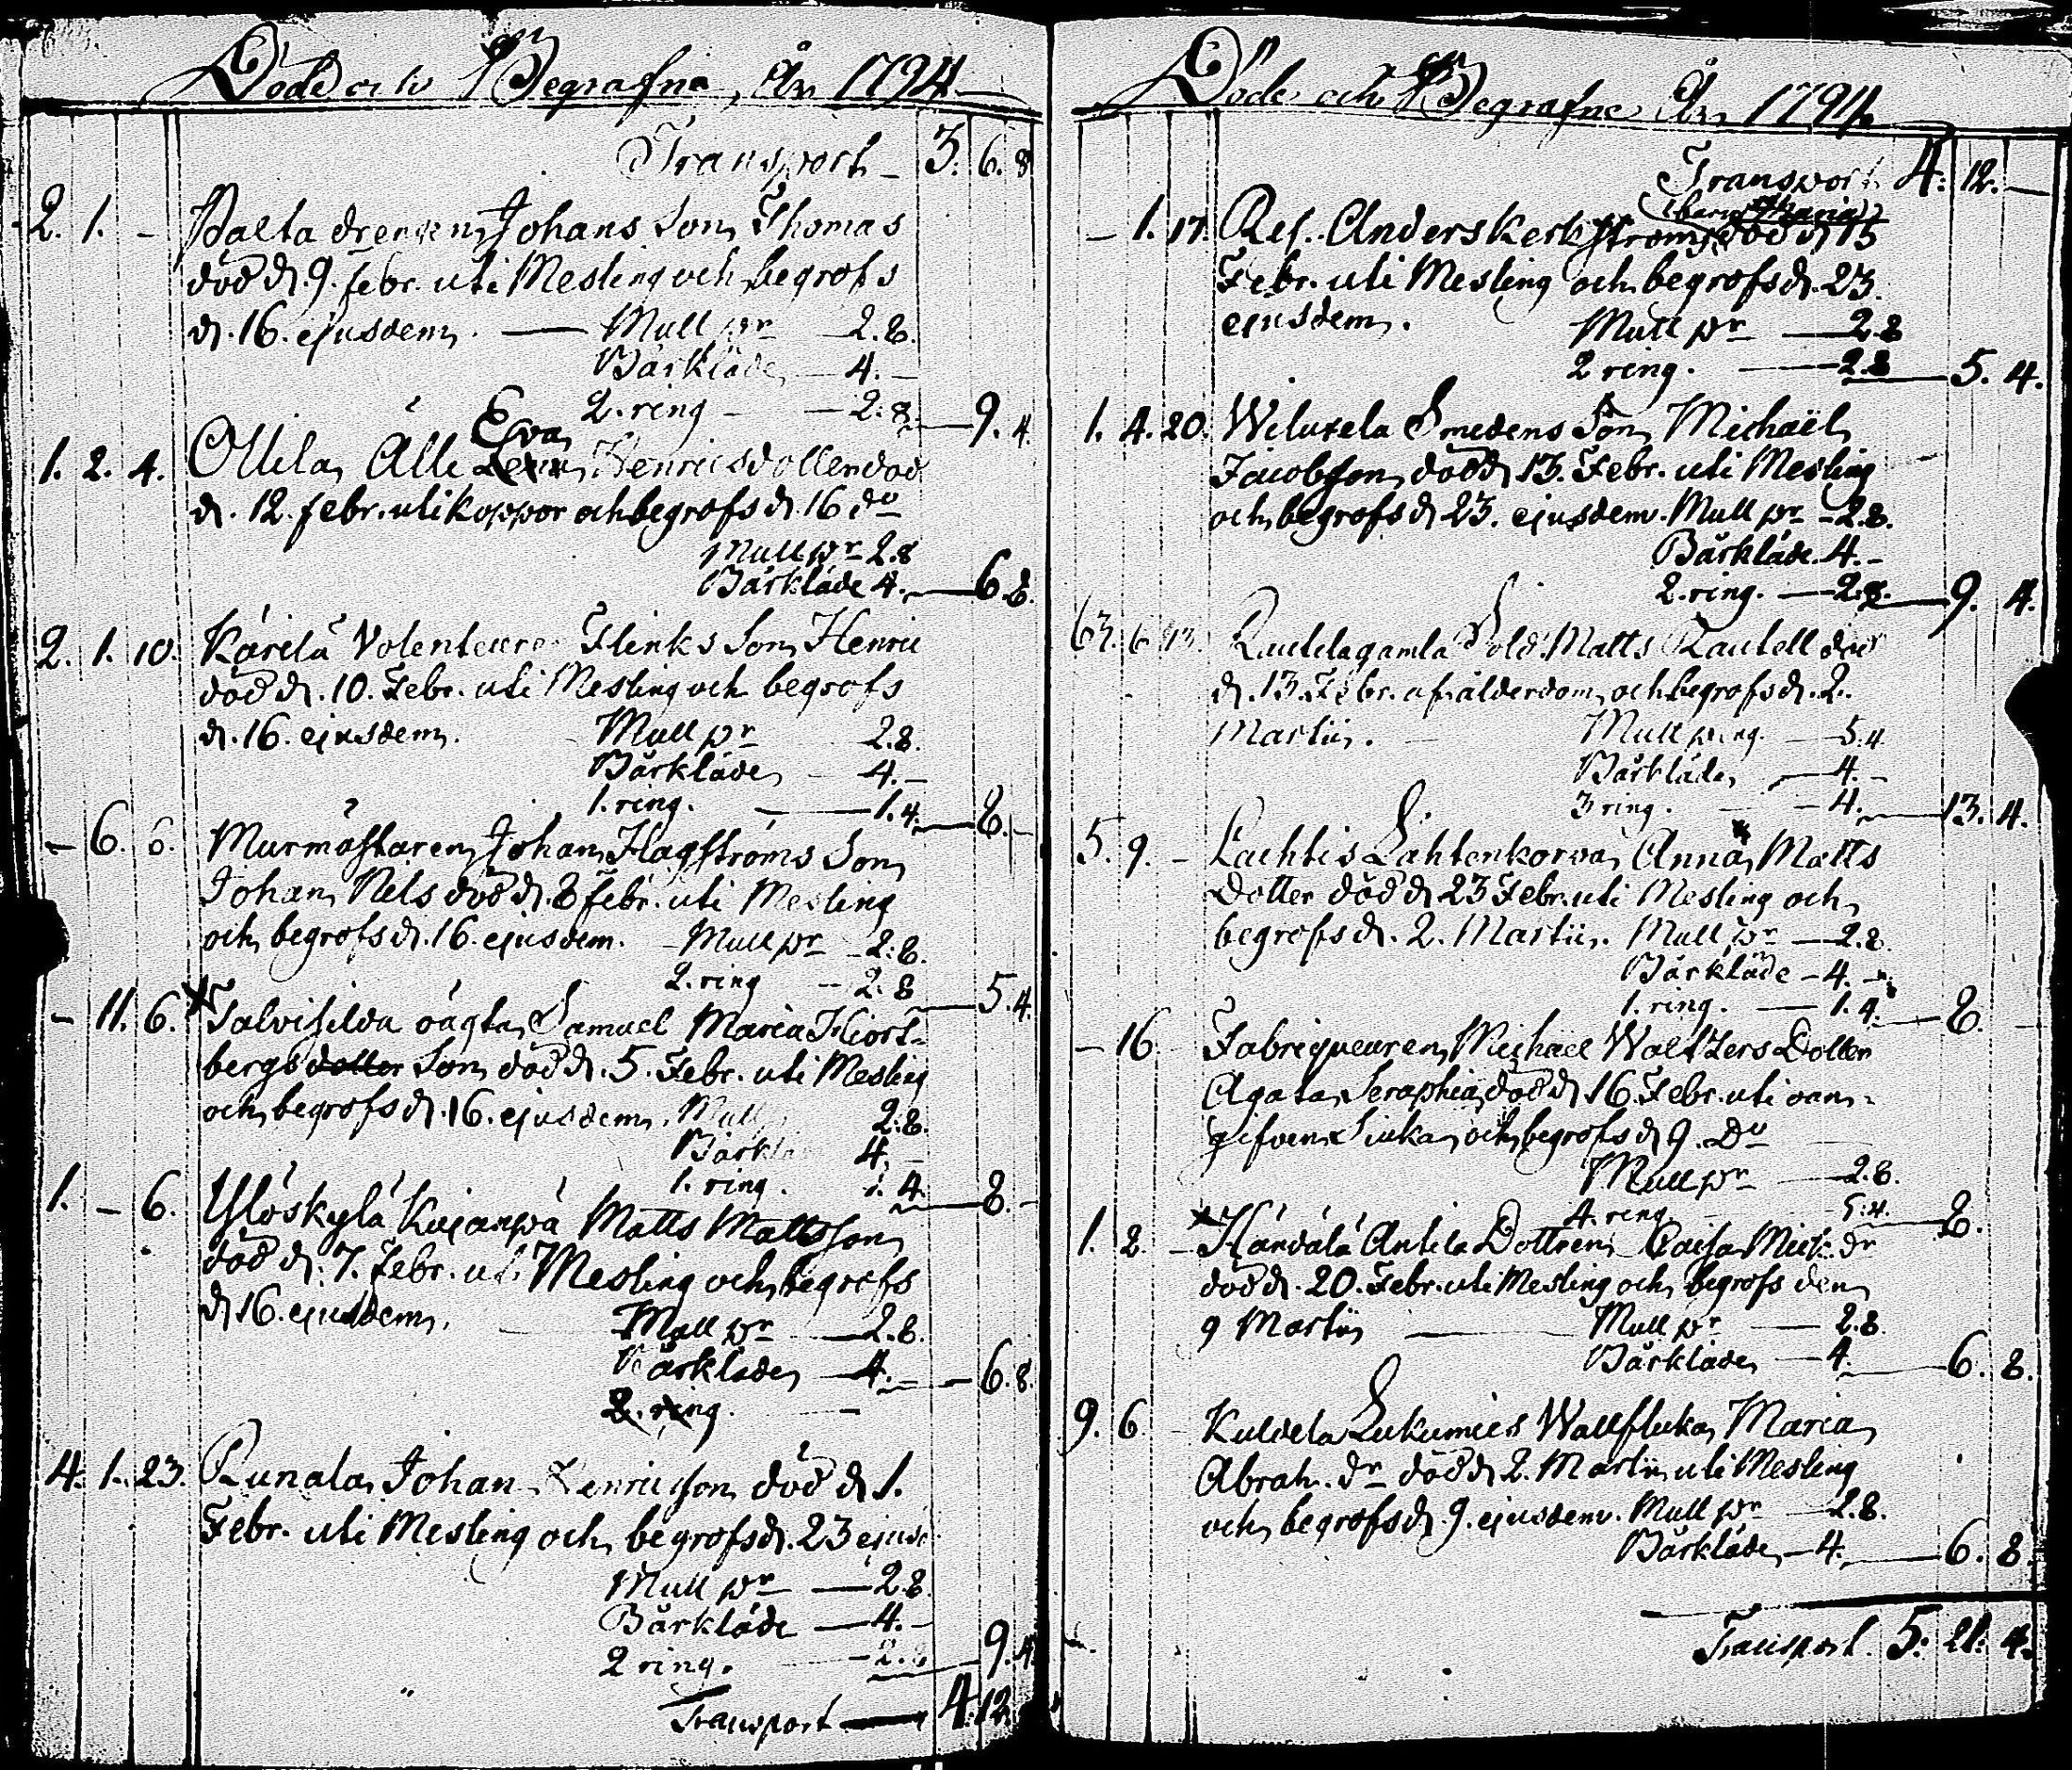 Döde och Begrafne, År 1794
Transport - 3. 6. 8
2. 1. - Palta drengen Johans Son Thomas
död d. 9. febr. uti Mesling och begrofs
d. 16. ejusdem. — Mull pr — 2.8.
Bårkläde — 4. —
2. ring — — 2.8. — 9. 4.
Eva
1. 2. 4. Ollila Älli Henricsdotter död
d. 12. febr. uti koppor och begrofs d. 16 do
Mull pr 2.8
Bårkläde 4. — 6.8.
2. 1. 10. Kärilä Volenteure Flinks Son Henric
död d. 10. Febr. uti Mesling och begrofs
d. 16. ejusdem. Mull pr 2.8.
Bårkläde — 4. —
1. ring. — 1.4. — 8. —
- 6. 6. Murmästaren Johan Hagströms Son
Johan Nels död d. 8 febr. uti Mesling
och begrofs d. 16. ejusdem. - Mull pr - 2.8.
2. ring - 2.8 — 5.4.
- 11. 6. Salvisilda oägta Samuel Maria Hiort-
bergs dotter Son död d. 5. Febr. uti Mesling
och begrofs d. 16. ejusdem. Mull 2.8.
Bårklä 4. —
1. ring. 1.4. — 8. —
1. - 6. Ylöskylä Kujanpä Matts Mattsson
död d. 7. Febr. uti Mesling och begrofs
d 16. ejusdem. Mull pr — 2.8.
Bårkläde — 4. — 6.8.
2. ring. —
4. 1. 23. Runala Johan Henricsson död d 1.
Febr. uti Mesling och begrofs d. 23 ejusd
Mull pr — 2.8.
Bårkläde — 4. —
2 ring. — 2.8 — 9. 4
Transport — 4. 12.
Döde och Begrafne År 1794
Transport 4. 12. —
barn Maria
- 1. 17. Ref. Anders Kerkströms död d 15
Febr. uti Mesling och begrofs d. 23.
ejusdem. Mull pr — 2.8
2 ring. — 2.8 — 5. 4.
1. 4. 20. Weluxela Smedens Son Michaël
Jacobsson död d 13. Febr. uti Mesling
och begrofs d 23. ejusdem. Mull pr - 2.8.
Bårkläde. 4. -
2. ring. — 2.8. — 9. 4.
63. 6 Rautela gamla Sold. Matts Rautell död
d. 13. Febr. af ålderdom och begrofs d. 2.
Martii. Mull peng. — 5.4
Bårkläde — 4. —
3 ring. — 4. — 13. 4.
5. 9. - Lachtis Lahtenkorva Anna Matts
Dotter död d 23 Febr. uti Mesling och
begrofs d. 2. Martii. Mull pr — 2.8.
Bårkläde - 4. -
1. ring. — 1.4. — 8. —
- 16. Fabriqueuren Michael Waltzers Dotter
Agata Seraphia död d 16. Febr. uti oan-
gifven Siuka och begrofs d 9. Do
Mull pr — 2.8.
4. ring 5.4. — 8.
1. 2. - Händälä Antila Dottren Caisa Mich. dr
död d. 20. Febr. uti Mesling och begrofs den
9 Martii — Mull pr — 2.8.
Bårkläde — 4. — 6. 8.
9. 6. Kuldela Lukumies Maria
Abrah. dr död d 2. Martii uti Mesling
och begrofs d. 9. ejusdem. Mull pr — 2.8.
Bårkläde — 4. — 6. 8.
Transport. 5. 21. 4.